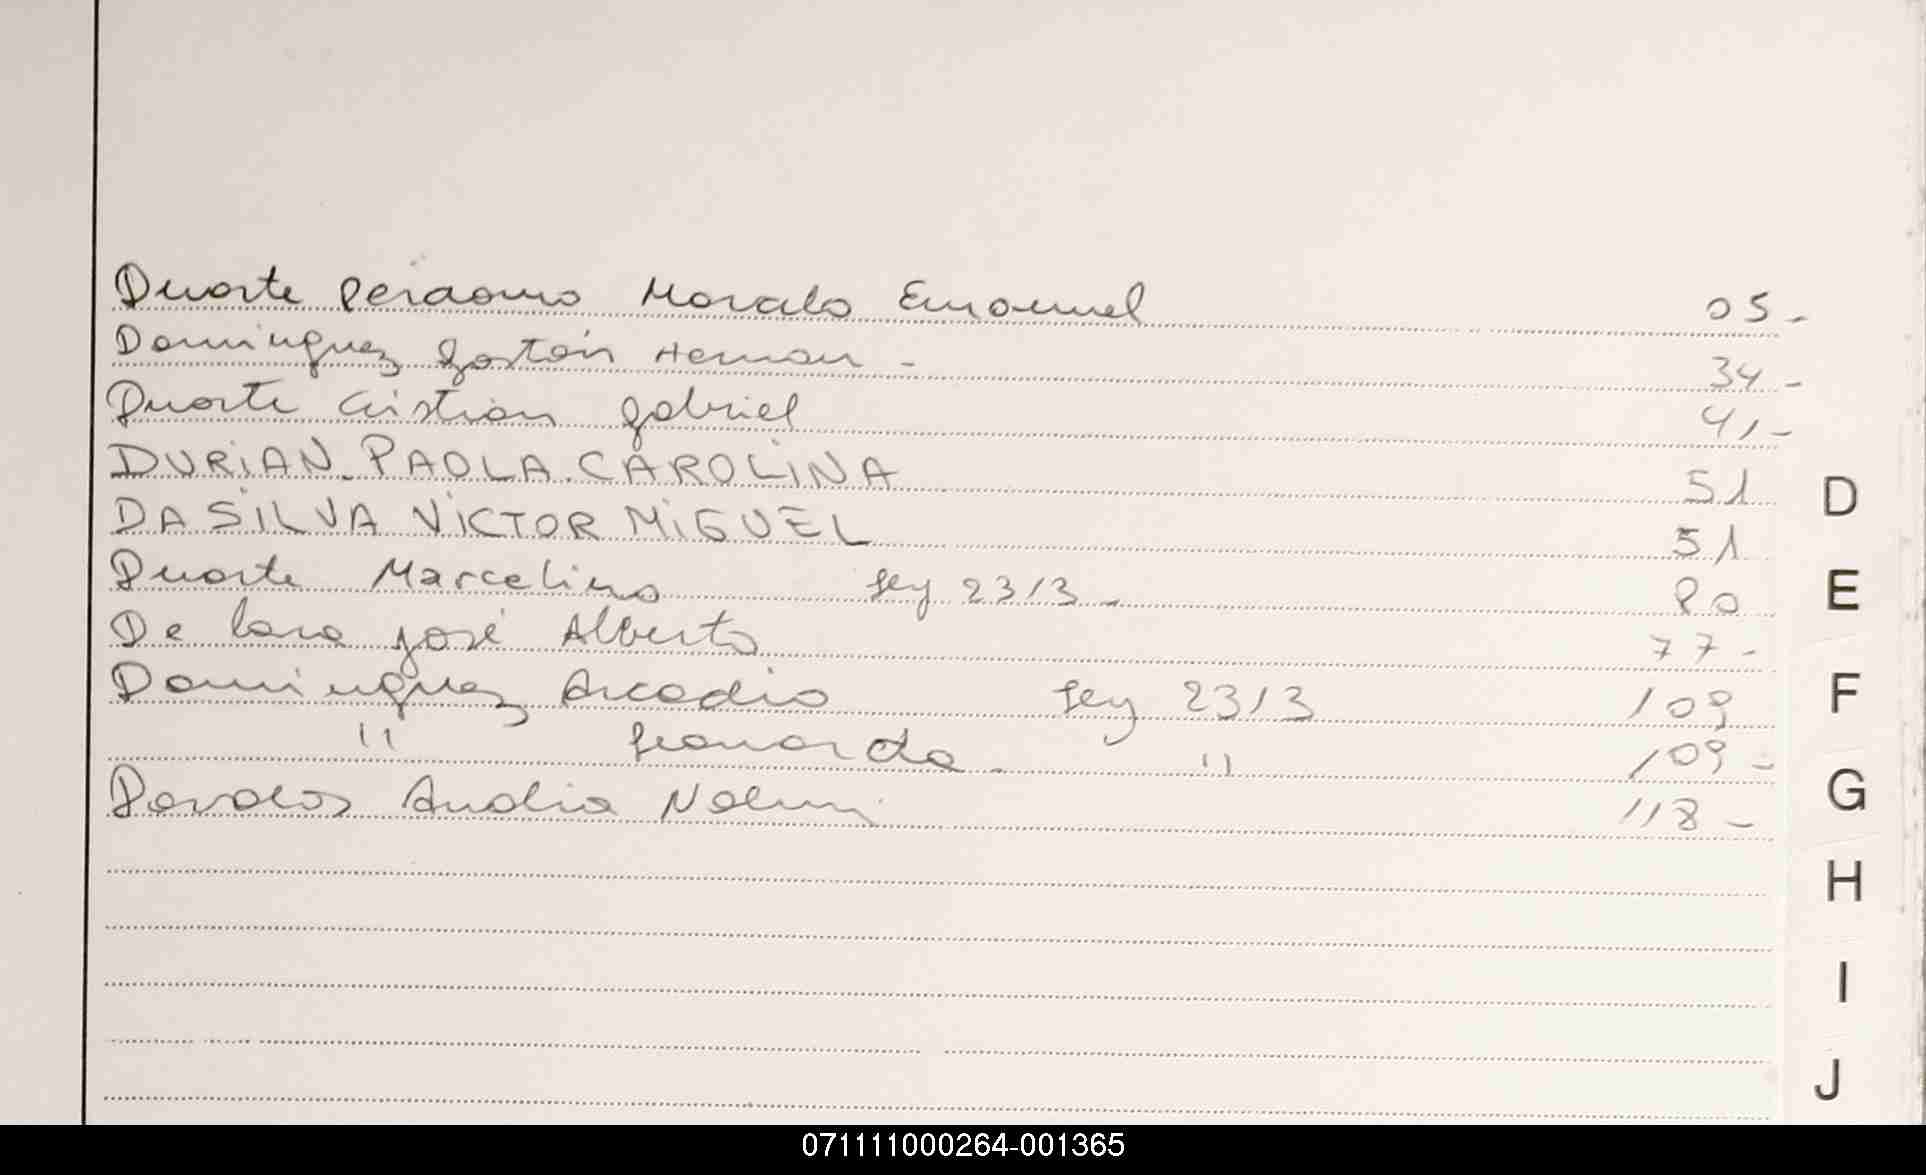 Duarte Perdomo Horacio Emanuel 05-
Dominguez Gastón Hernan - 34-
Duarte Cristian Gabriel 41-
DURIAN PAOLA CAROLINA 51
DA SILVA VICTOR MIGUEL 51
Duarte Marcelino Ley 2313 - 80
De Lara José Alberto 77-
Dominguez Arcadio Ley 2313 109
" Leonarda - " 109-
Davalos Analia Noemi 118-
D
E
F
G
H
I
J
071111000264-001365